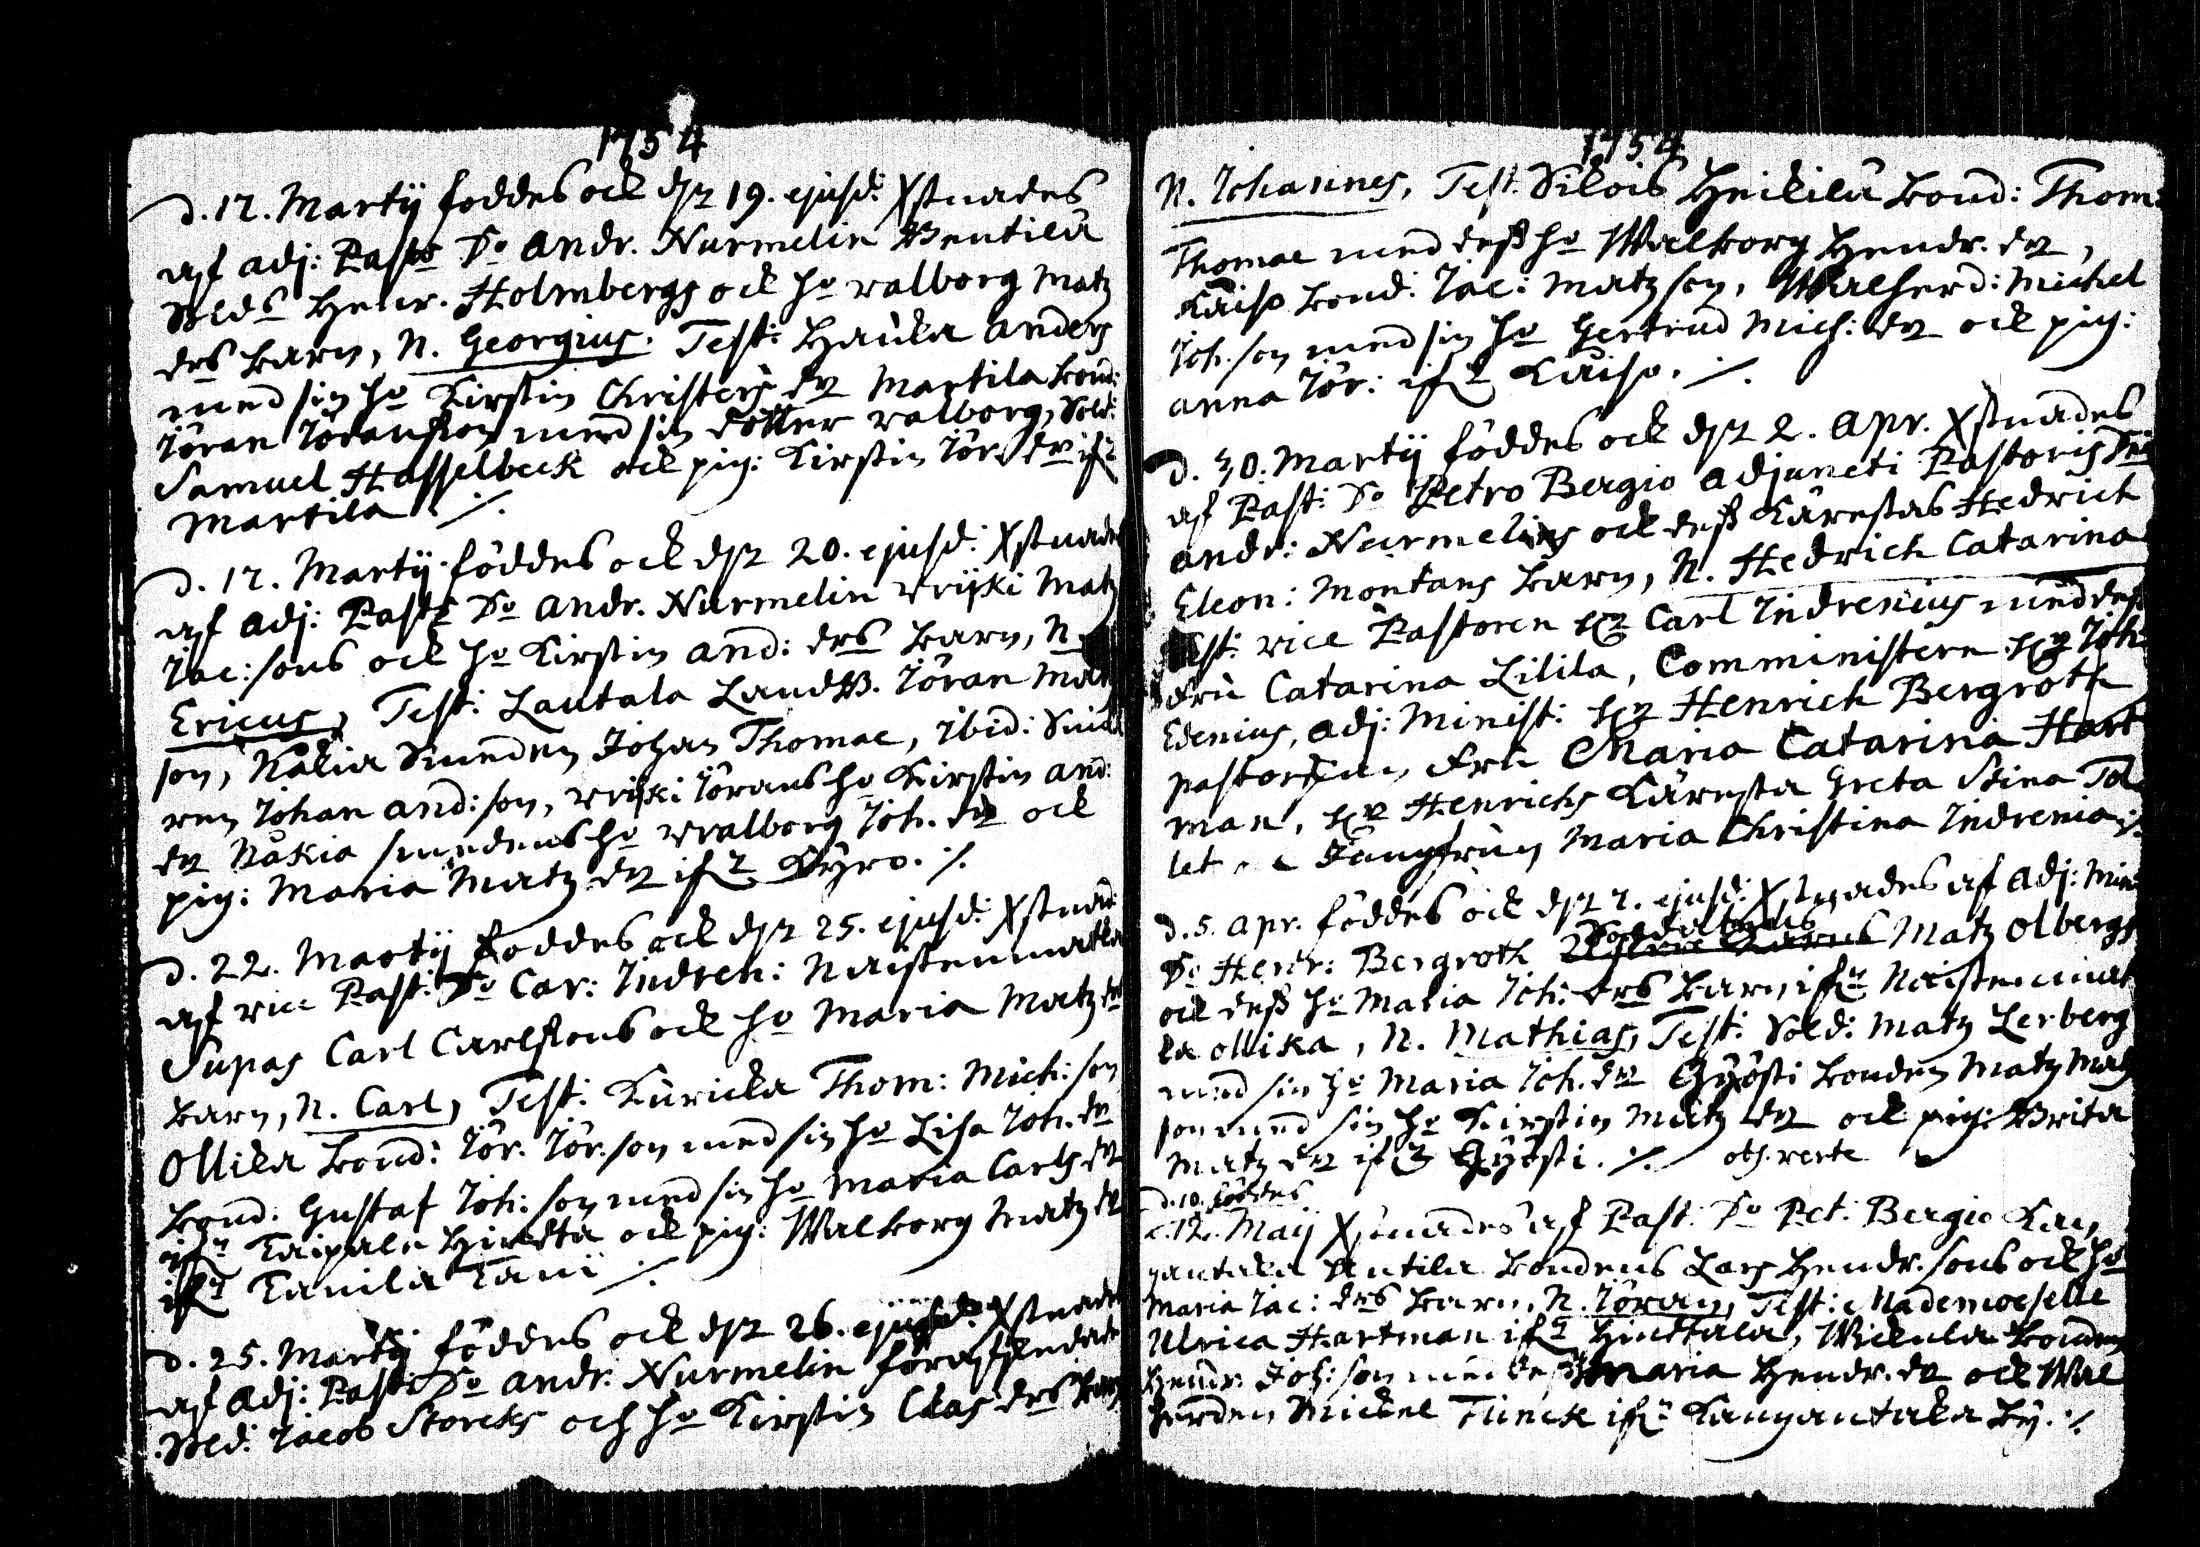 1754
d. 17. Martij föddes ock d. 19. ejusd: Xstnades
af adj: Past: Do Andr. Nurmelin Pentilä
Sold: Henr. Holmbergs ock ho Valborg Matz
drs barn, N. Georgius. Test: Hauka Anders
med sin ho Kirstin Christers dr Martila bond:
Jöran Jöransson med sin dotter Valborg, Sold:
Samuel Hasselbeck ock pig: Kirstin Jör: dr ifr
Martila ./.
d. 17. Martij föddes ock d. 20. ejusd: Xstnades
af adj: Past: Do Andr. Nurmelin Vrijki Matz
Jac: sons ock ho Kirstin And: drs barn, N.
Ericus, Test: Lautala Jöran Matz
son, Nåkia Smeden Johan Thomae, ibid:
ren Johan And: son, Vrijki Jörans ho Kirstin And:
dr Nåkia smedens ho Valborg Joh. dr ock
pig: Maria Matz dr ifr Kyro. ./.
d. 22. Martij föddes ock d. 25. ejusd: Xstnad:
af vice Past: Do Car: Indren: Naistenmatka
Supas Carl Carlssons ock ho Maria Matz dr
barn, N. Carl, Test: Kuricka Thom: Mich: son
Ollila bond: Jör. Jör. son med sin ho Lisa Joh. dr
bond. Gustaf Joh: son med sin ho Maria Carls dr
ifr Taipale ock pig: Walborg Matz dr
ifr Tanila Tani ./.
d. 25. Martij föddes ock d. 26. ejusd: Xstnades
af adj: Past: Do Andr. Nurmelin
Sold: Jacob Storcks och ho Kirstin Clas drs barn
1754
N. Johannes, Test. Silois Heikilä bond: Thom:
Thomae med dess ho Walborg Hendr. dr,
Kaiso bond: Jac: Matz son, Michel
Joh. son med sin ho Gertrud Mich: dr ock pig:
Anna Jör: ifr Kaiso. ./.
d. 30. Martij föddes ock d. 2. Apr. Xstnades
af Past: Do Petro Bergio Adjuncti Pastoris Dni
Andr: Nurmelins ock dess Kärestas Hedrich
Eleon: Montans barn, N. Hedrich Catarina
Test: vice Pastoren Hr Carl Indrenius med dess
fru Catarina Lilila, Comministern Hr Joh:
Edenius, adj: Minist: Hr Henrich Bergroth
fru Maria Catarina Hart
man, Hr Henrichs Käresta Greta Stina Tol
let Jungfrun Maria Christina Indrenia ./.
d. 5. Apr. föddes ock d. 7. ejusd: Xstnades af Adj: Min:
Do Henr: Bergroth Soldatens Matz Olbergs
ock dess ho Maria Joh: drs barn ifr Naistenmat
ka Ollika, N. Mathias, Test: Sold: Matz Lerberg
med sin ho Maria Joh. dr Gyösti bonden Matz Matz
son med sin ho Kirstin Matz dr ock pig: Brita
Matz dr ifr Gyösti. ./. obs. verte
d. 10. föddes
d. 12. Maij Xstnades af Past: Do Pet: Bergio Kan
gantaka Antila bondens Lars Hendr. sons ock ho
Maria Jac: drs barn, N. Jöran, Test: Mademoeselle
Ulrica Hartman ifr Hinttala, Wickula bonden
Hendr. Joh: son med dess Maria Hendr. dr ock Wal
herden Mickel Funck ifr Kangantaka by. ./.